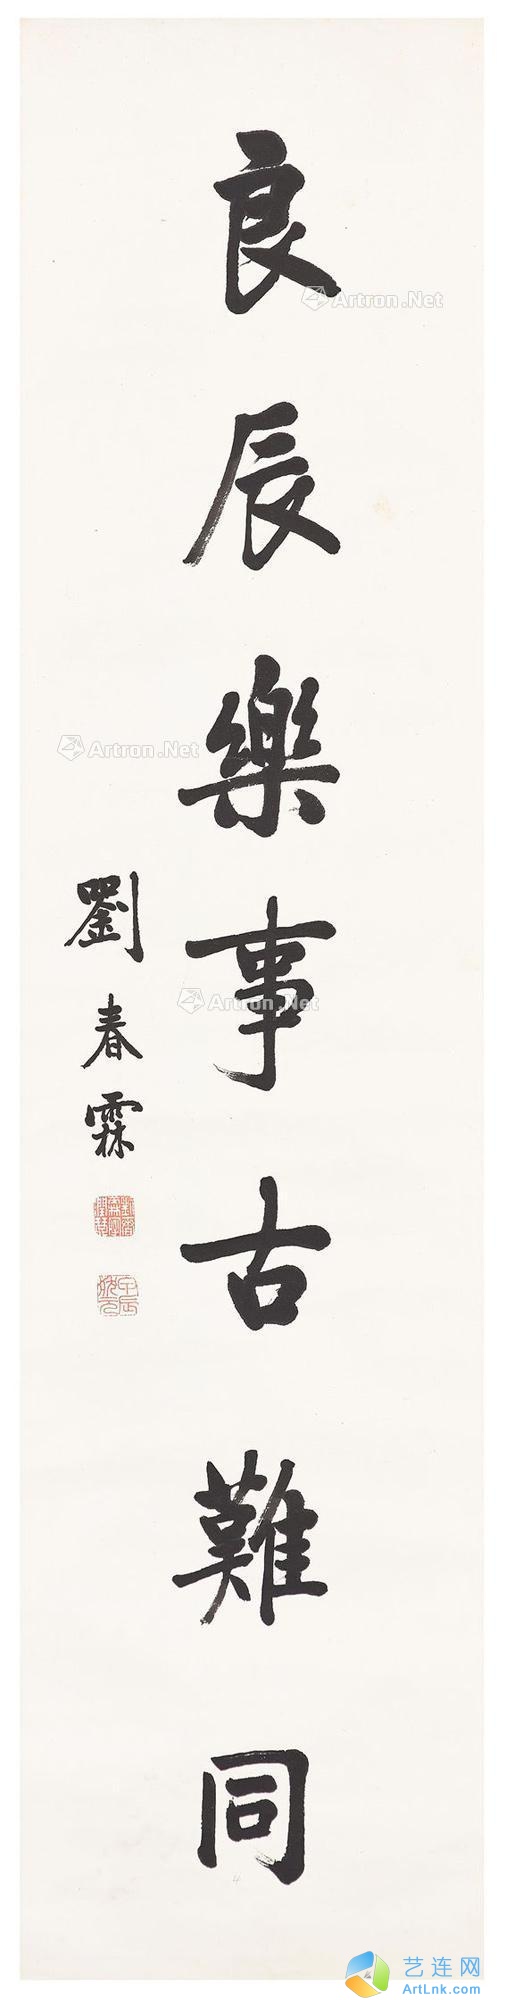 良辰樂事古難同
劉春霖
Artron.Net
Artron.Net
Artron.Net
艺连网
ArtLnk.com